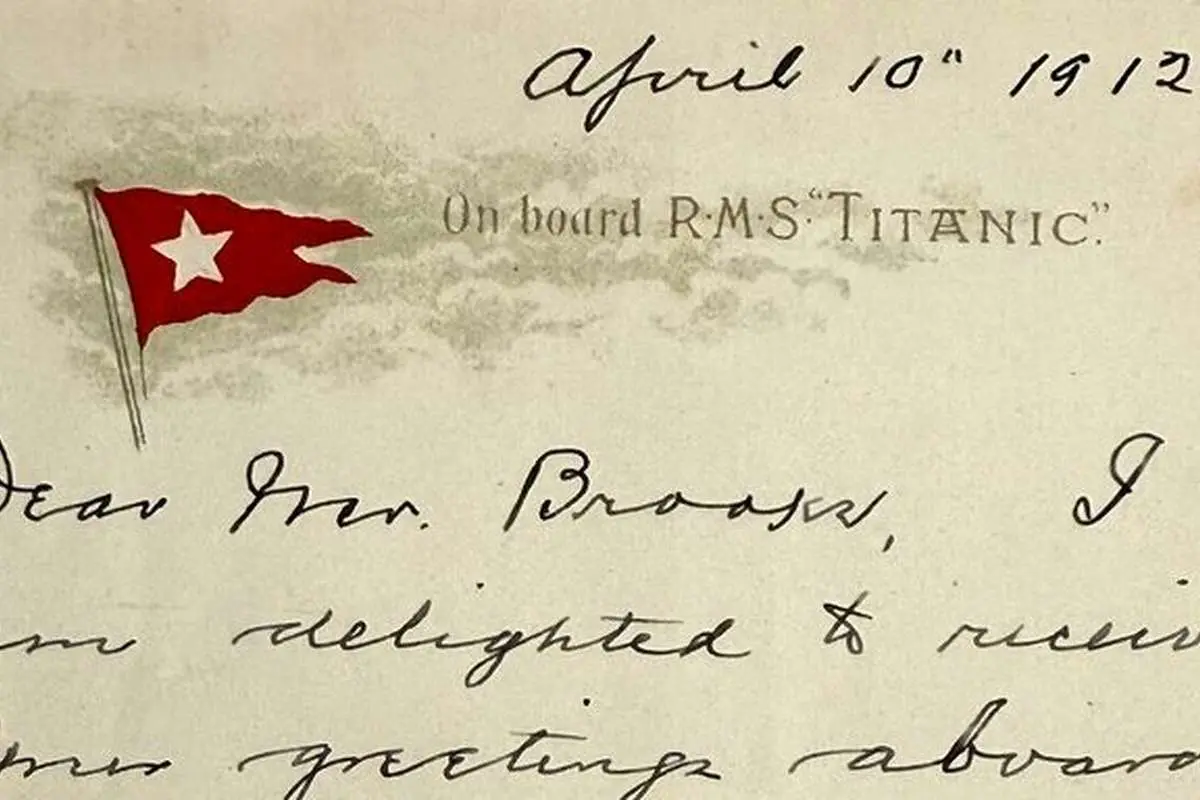 April 10" 1912
On board R·M·S· "TITANIC".
Dear Mr. Brooks, I
am delighted to receiv
greetings aboard